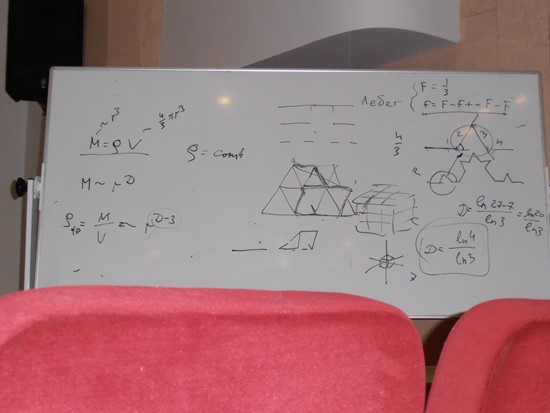 ~ r³
4/3 πr³
M = ρ V
ρ = const
M ~ r^D
ρ_ф = M/V ~ r^(D-3)
Лебег
F = 1/3
F = F - F + + F - F
4/3
1 2 3 4
D = ln 27-7 / ln 3 = ln 20 / ln 3
D = ln 4 / ln 3